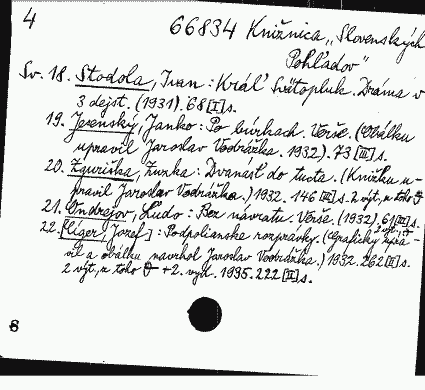 4
66834 Knižnica „Slovenských
Pohľadov"
Sv. 18. Stodola, Ivan: Kráľ Svätopluk. Dráma v
3 dejst. (1931). 68 [I] s.
19. Jesenský, Janko: Po búrkach. Verše. (Obálku
upravil Jaroslav Vodrážka. 1932). 73 [III] s.
20. Zguriška, Zuzka: Dvanásť do tucta. (Knižku u-
pravil Jaroslav Vodrážka.) 1932. 146 [III] s. 2 výt., u toho
21. Ondrejov, Ľudo: Bez návratu. Verše. (1932). 61 [III] s.
22. [Cíger, Jozef]: Podpolianske rozprávky. (Graficky upra-
vil a obálku navrhol Jaroslav Vodrážka.) 1932. 262 [II] s.
2 výt., u toho + 2. vyd. 1935. 222 [II] s.
8